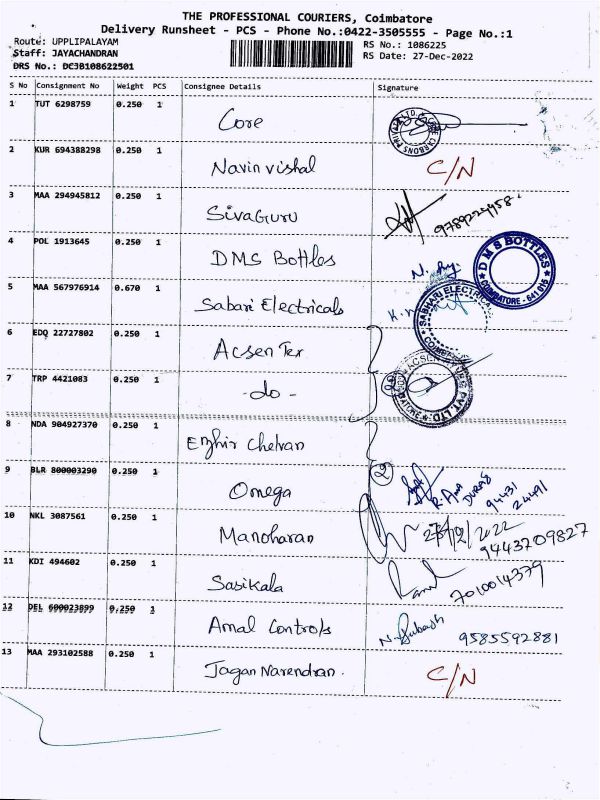 THE PROFESSIONAL COURIERS, Coimbatore
Delivery Runsheet - PCS - Phone No.:0422-3505555 - Page No.:1
Route: UPPLIPALAYAM
RS No.: 1086225
Staff: JAYACHANDRAN
RS Date: 27-Dec-2022
DRS No.: DC3B108622501
S No Consignment No Weight PCS Consignee Details Signature
1 TUT 6298759 0.250 1 Core
2 KUR 694388298 0.250 1 Navin vishal C/N
3 MAA 294945812 0.250 1 SivaGuru 9789224458
4 POL 1913645 0.250 1 DMS Bottles
DMS BOTTLES
COIMBATORE - 641 015
5 MAA 567976914 0.670 1 Sabari Electricals
SABHARI ELECTRICALS
6 EDQ 22727802 0.250 1 Acsen Tex
7 TRP 4421083 0.250 1 -do-
8 NDA 904927370 0.250 1 Ezhir Chelvan
9 BLR 800003290 0.250 1 Omega 2 94431 24491
10 NKL 3087561 0.250 1 Manoharan 27/12/2022 9443709827
11 KDI 494602 0.250 1 Sasikala 7010014379
12 DEL 600023899 0.250 1 Amal Controls N. Subash 9585592881
13 MAA 293102588 0.250 1 Jagan Narendran. C/N